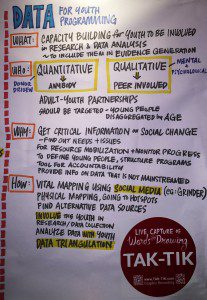 DATA FOR YOUTH PROGRAMMING
WHAT: CAPACITY BUILDING FOR YOUTH TO BE INVOLVED
in RESEARCH & DATA ANALYSIS
~ TO INCLUDE THEM IN EVIDENCE GENERATION
WHO: QUANTITATIVE QUALITATIVE
MENTAL
PSYCHOLOGICAL
DONOR
DRIVEN
ANYBODY PEER INVOLVED
ADULT-YOUTH PARTNERSHIPS
SHOULD BE TARGETED - YOUNG PEOPLE
DISAGGREGATED by AGE
WHY: GET CRITICAL INFORMATION ON SOCIAL CHANGE
- FIND OUT NEEDS + ISSUES
FOR RESOURCE MOBILIZATION + MONITOR PROGRESS
TO DEFINE YOUNG PEOPLE, STRUCTURE PROGRAMS
TOOL FOR ACCOUNTABILITY
PROVIDE INFO ON DATA THAT IS NOT MAINSTREAMED
HOW: VITAL MAPPING USING SOCIAL MEDIA (eg: GRINDER)
PHYSICAL MAPPING, GOING TO HOTSPOTS
FIND ALTERNATIVE DATA SOURCES
INVOLVE the YOUTH IN
RESEARCH/DATA COLLECTION
ANALYZE DATA WITH YOUTH
DATA TRIANGULATION!
LIVE CAPTURE of
Words + Drawing
TAK-TIK